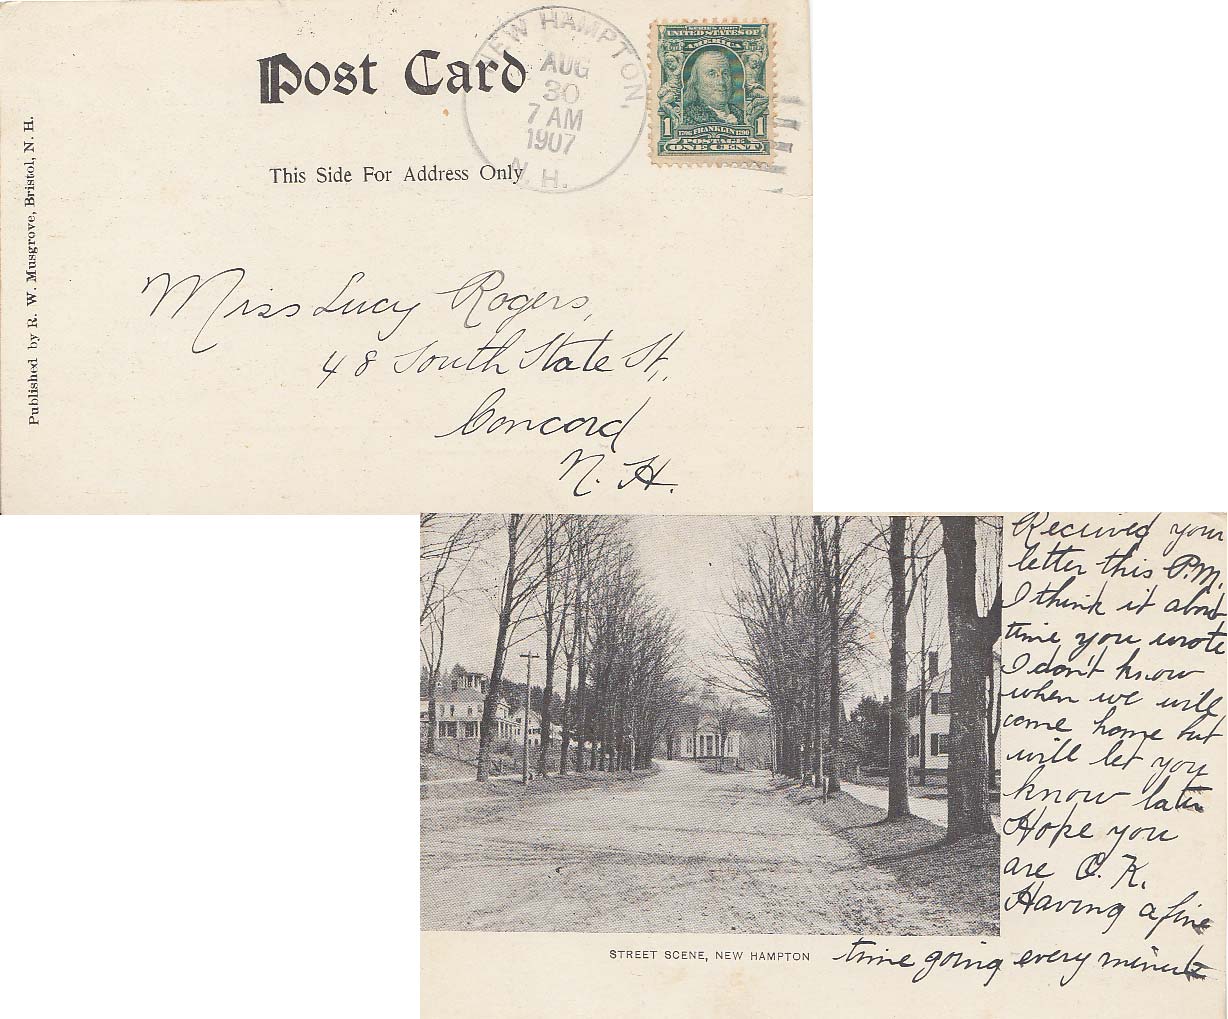 Post Card
This Side For Address Only
NEW HAMPTON,
AUG
30
7 AM
1907
N. H.
SERIES 1902
UNITED STATES OF
AMERICA
1 1706 FRANKLIN 1790 1
POSTAGE
ONE CENT
Published by R. W. Musgrove, Bristol, N. H.
Miss Lucy Rogers,
48 South State St.,
Concord
N. H.
Recieved your
letter this P.M.
I think it about
time you wrote
I don't know
when we will
come home but
will let you
know later
Hope you
are O. K.
Having a fine
time going every minute
STREET SCENE, NEW HAMPTON